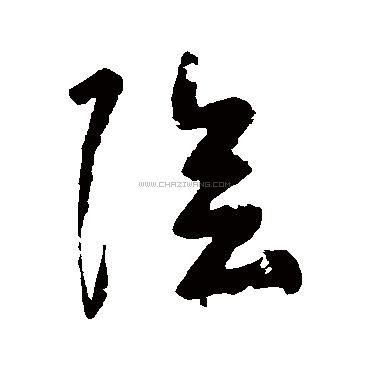 陰
WWW.CHAZIWANG.COM